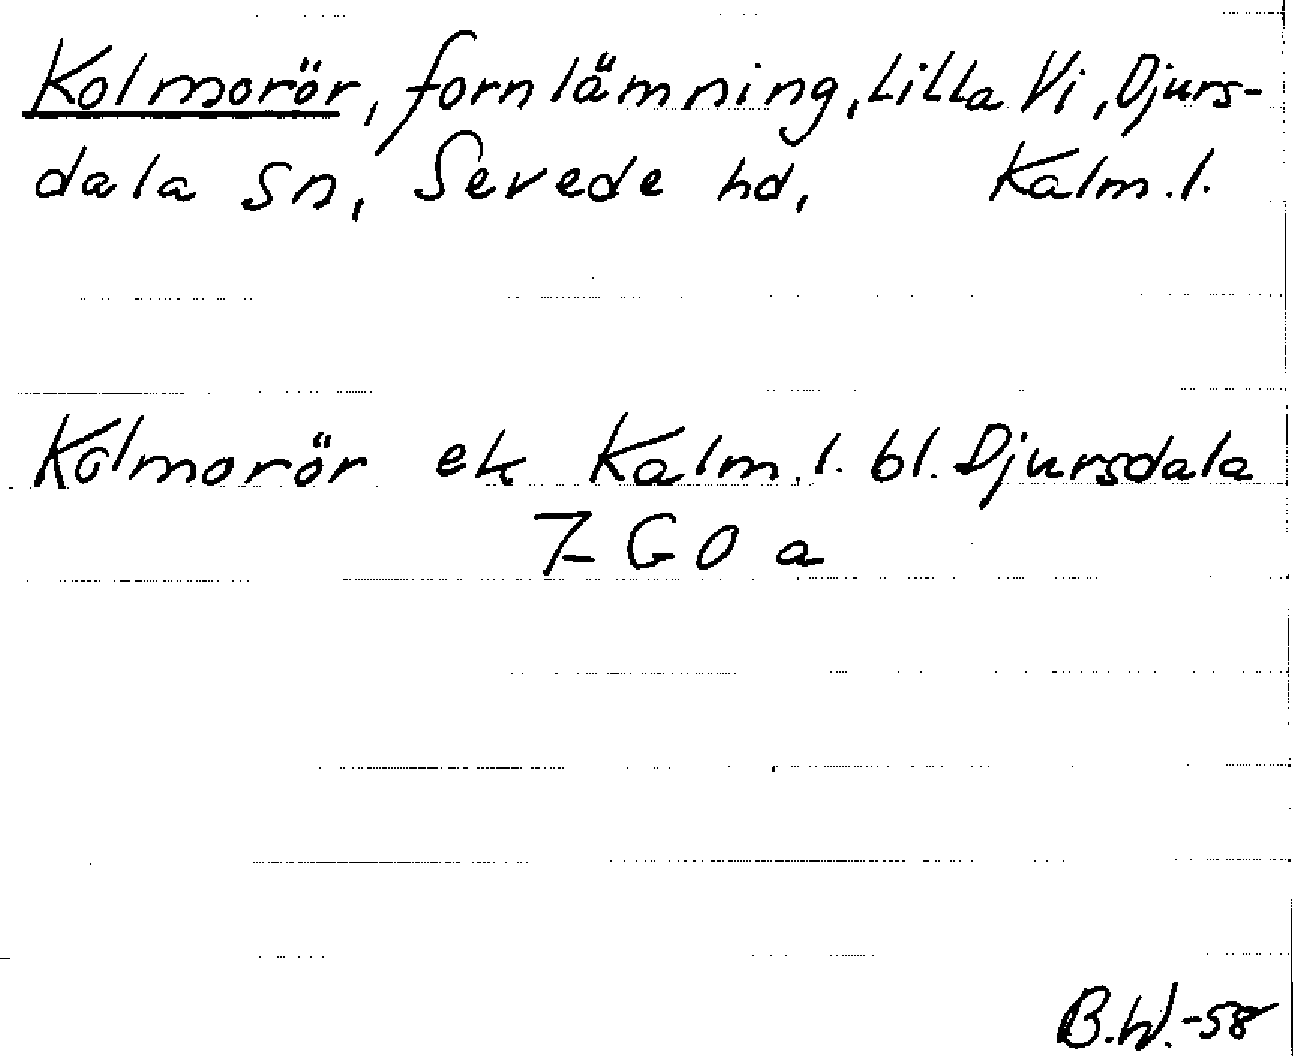 Kolmorör, fornlämning, Lilla Vi, Djurs-
dala sn, Sevede hd, Kalm. l.
Kolmorör ek Kalm. l. bl. Djursdala
7 G 0 a
B.W.-58